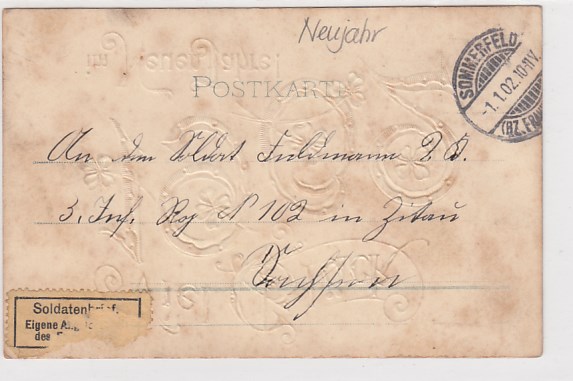 Neujahr
POSTKARTE
SOMMERFELD
-1.1.02.10-11V.
(BZ. FR
An den Soldat Feldmann 2 D.
3. Inf. Reg N 102 in Zitau
Sachsen
Soldatenbrief.
Eigene
des